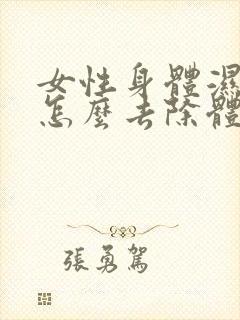 女性身體濕
怎麼去除體
張勇駕